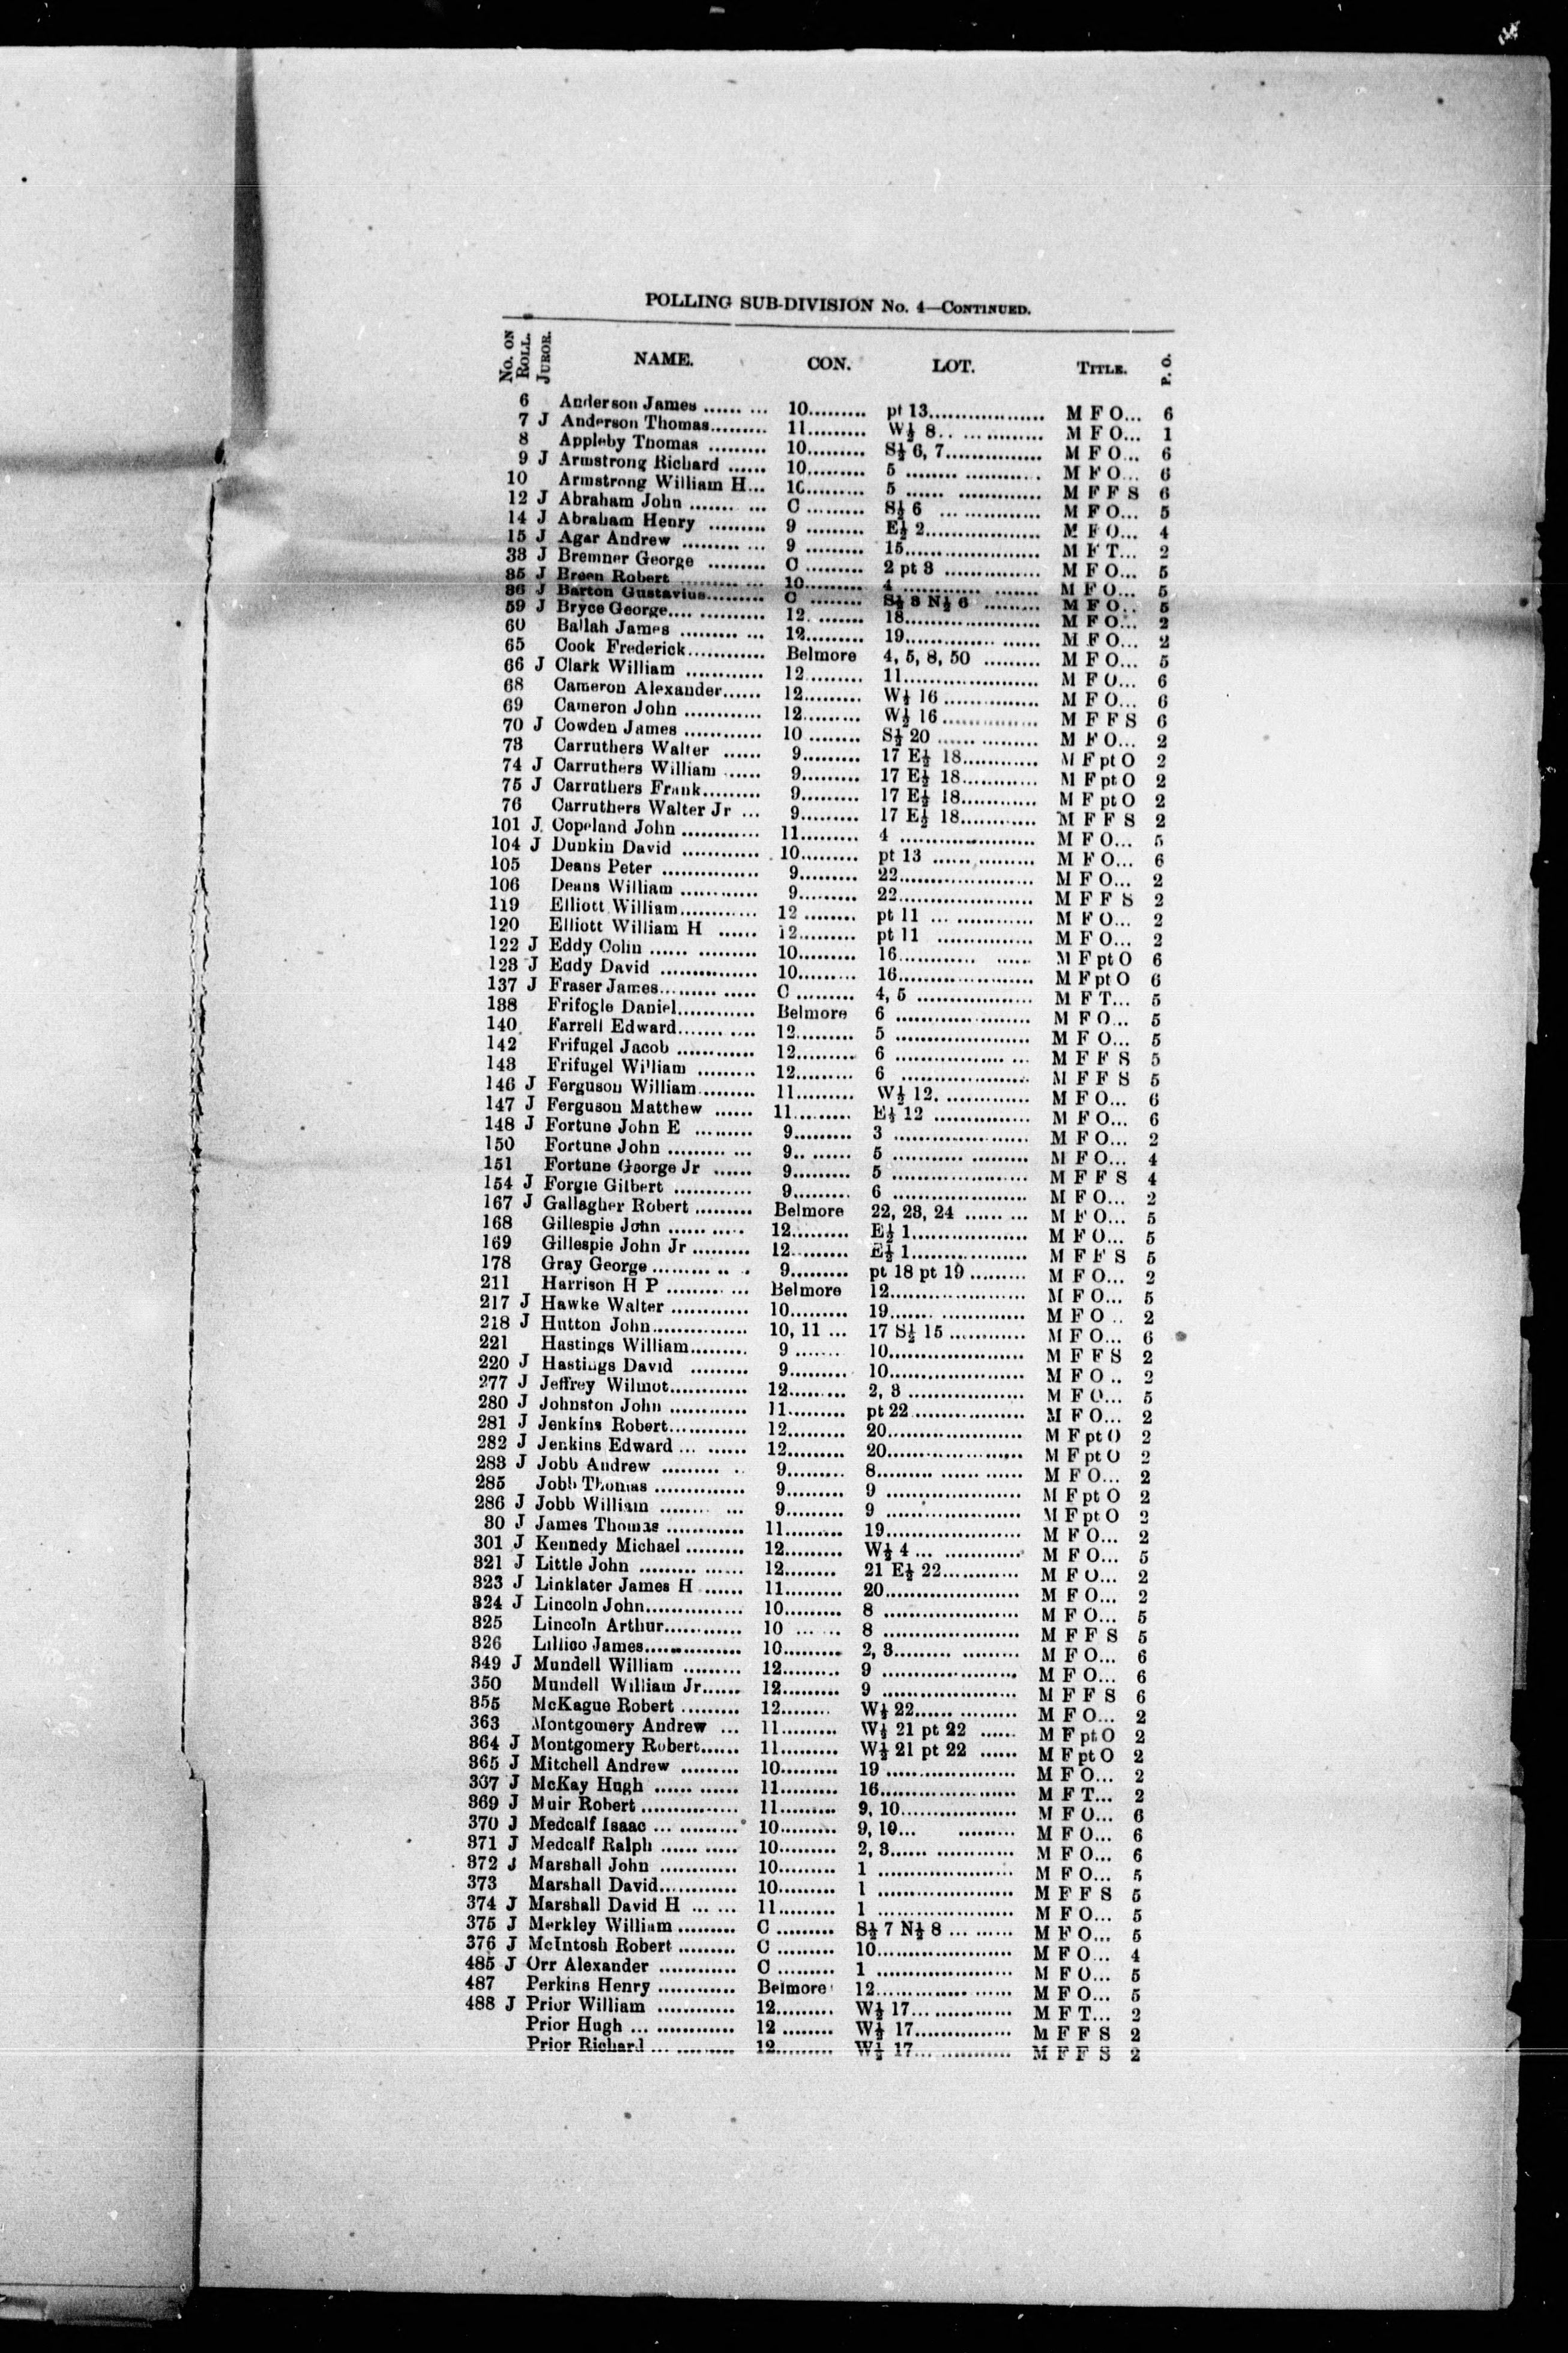 POLLING SUB-DIVISION No. 4—CONTINUED.
No. ON ROLL. JUROR. NAME. CON. LOT. TITLE. P. O.
6 Anderson James ...... ... 10......... pt 13.................. M F O... 6
7 J Anderson Thomas......... 11......... W½ 8.. .. ... ......... M F O... 1
8 Appleby Thomas ......... 10......... S½ 6, 7............... M F O... 6
9 J Armstrong Richard ...... 10......... 5 ........ ............ M F O... 6
10 Armstrong William H... 10......... 5 ...... ............. M F F S 6
12 J Abraham John ....... ... C ......... S½ 6 ... ............. M F O... 5
14 J Abraham Henry ......... 9 ......... E½ 2.................. M F O... 4
15 J Agar Andrew ......... ... 9 ......... 15..................... M F T... 2
33 J Bremner George ......... C ......... 2 pt 3 ............... M F O... 5
35 J Breen Robert ......... ... 10......... 4 ............ ....... M F O... 5
36 J Barton Gustavius......... C ........ S½ 8 N½ 6 ......... M F O.. 5
59 J Bryce George.... .......... 12. ....... 18..................... M F O... 2
60 Ballah James ......... ... 12......... 19.............. ...... M F O... 2
65 Cook Frederick............ Belmore 4, 5, 8, 50 ......... M F O... 5
66 J Clark William ............ 12......... 11..................... M F O... 6
68 Cameron Alexander...... 12......... W½ 16 ............... M F O... 6
69 Cameron John ............ 12......... W½ 16 ............... M F F S 6
70 J Cowden James ............ 10 ........ S½ 20 ...... ......... M F O... 2
73 Carruthers Walter ...... 9......... 17 E½ 18............ M F pt O 2
74 J Carruthers William ...... 9......... 17 E½ 18............ M F pt O 2
75 J Carruthers Frank......... 9......... 17 E½ 18............ M F pt O 2
76 Carruthers Walter Jr ... 9......... 17 E½ 18............ M F F S 2
101 J. Copeland John ............ 11......... 4 ..................... M F O... 5
104 J Dunkin David ............ 10......... pt 13 ...... ......... M F O... 6
105 Deans Peter ............... 9......... 22..................... M F O... 2
106 Deans William ............ 9......... 22..................... M F F S 2
119 Elliott William............ 12 ........ pt 11 ... ............ M F O... 2
120 Elliott William H ...... 12......... pt 11 ............... M F O... 2
122 J Eddy Colin ...... ......... 10......... 16............ ...... M F pt O 6
123 J Eddy David ............... 10......... 16..................... M F pt O 6
137 J Fraser James......... ..... C ......... 4, 5 .................. M F T... 5
138 Frifogle Daniel............ Belmore 6 ..................... M F O... 5
140 Farrell Edward....... .... 12......... 5 ..................... M F O... 5
142 Frifugel Jacob ............ 12......... 6 ................. ... M F F S 5
143 Frifugel William ......... 12......... 6 .................... M F F S 5
146 J Ferguson William......... 11......... W½ 12. ............. M F O... 6
147 J Ferguson Matthew ...... 11......... E½ 12 ............... M F O... 6
148 J Fortune John E ......... 9......... 3 ..................... M F O... 2
150 Fortune John ......... ... 9.. ...... 5 ........... ......... M F O... 4
151 Fortune George Jr ...... 9......... 5 ..................... M F F S 4
154 J Forgie Gilbert ............ 9......... 6 ..................... M F O... 2
167 J Gallagher Robert ......... Belmore 22, 23, 24 ...... ... M F O... 5
168 Gillespie John ...... ..... 12......... E½ 1.................. M F O... 5
169 Gillespie John Jr ......... 12......... E½ 1.................. M F F S 5
178 Gray George ......... .. . 9......... pt 18 pt 19 ......... M F O... 2
211 Harrison H P ......... ... Belmore 12..................... M F O... 5
217 J Hawke Walter ............ 10......... 19....... ............. M F O .. 2
218 J Hutton John............... 10, 11 ... 17 S½ 15 ............ M F O... 6
221 Hastings William......... 9 ....... 10..................... M F F S 2
220 J Hastings David ......... 9......... 10..................... M F O .. 2
277 J Jeffrey Wilmot............ 12......... 2, 3 .................. M F O... 5
280 J Johnston John ............ 11......... pt 22 ................. M F O... 2
281 J Jenkins Robert............ 12......... 20..................... M F pt O 2
282 J Jenkins Edward ... ...... 12......... 20..................... M F pt O 2
283 J Jobb Andrew ......... .. 9......... 8......... ...... ...... M F O... 2
285 Jobb Thomas .............. 9......... 9 ..................... M F pt O 2
286 J Jobb William ........ ... 9......... 9 ..................... M F pt O 2
30 J James Thomas ............ 11......... 19..................... M F O... 2
301 J Kennedy Michael ......... 12......... W½ 4 ... ............ M F O... 5
321 J Little John ......... ...... 12........ 21 E½ 22............ M F O... 2
323 J Linklater James H ...... 11......... 20..................... M F O... 2
324 J Lincoln John............... 10......... 8 ..................... M F O... 5
325 Lincoln Arthur............ 10 ... ... 8 ..................... M F F S 5
326 Lillico James............... 10......... 2, 3......... ......... M F O... 6
349 J Mundell William ......... 12......... 9 ..................... M F O... 6
350 Mundell William Jr...... 12......... 9 ..................... M F F S 6
355 McKague Robert ......... 12........ W½ 22...... ......... M F O... 2
363 Montgomery Andrew ... 11......... W½ 21 pt 22 ...... M F pt O 2
364 J Montgomery Robert...... 11......... W½ 21 pt 22 ...... M F pt O 2
365 J Mitchell Andrew ......... 10......... 19 .................... M F O... 2
367 J McKay Hugh ...... ...... 11......... 16..................... M F T... 2
369 J Muir Robert ............... 11......... 9, 10.................. M F O... 6
370 J Medcalf Isaac ... ......... 10......... 9, 10... ......... M F O... 6
371 J Medcalf Ralph ...... ..... 10......... 2, 3...... ............ M F O... 6
372 J Marshall John ............ 10......... 1 ..................... M F O... 5
373 Marshall David............ 10......... 1 ..................... M F F S 5
374 J Marshall David H ... ... 11......... 1 ..................... M F O... 5
375 J Merkley William ......... C ......... S½ 7 N½ 8 ... ...... M F O... 5
376 J McIntosh Robert ......... C ......... 10..................... M F O... 4
485 J Orr Alexander ............ C ......... 1 ..................... M F O... 5
487 Perkins Henry ............ Belmore 12.............. ...... M F O... 5
488 J Prior William ............ 12......... W½ 17... ............ M F T... 2
Prior Hugh ... ............ 12 ........ W½ 17............... M F F S 2
Prior Richard ... ......... 12......... W½ 17... ........... M F F S 2